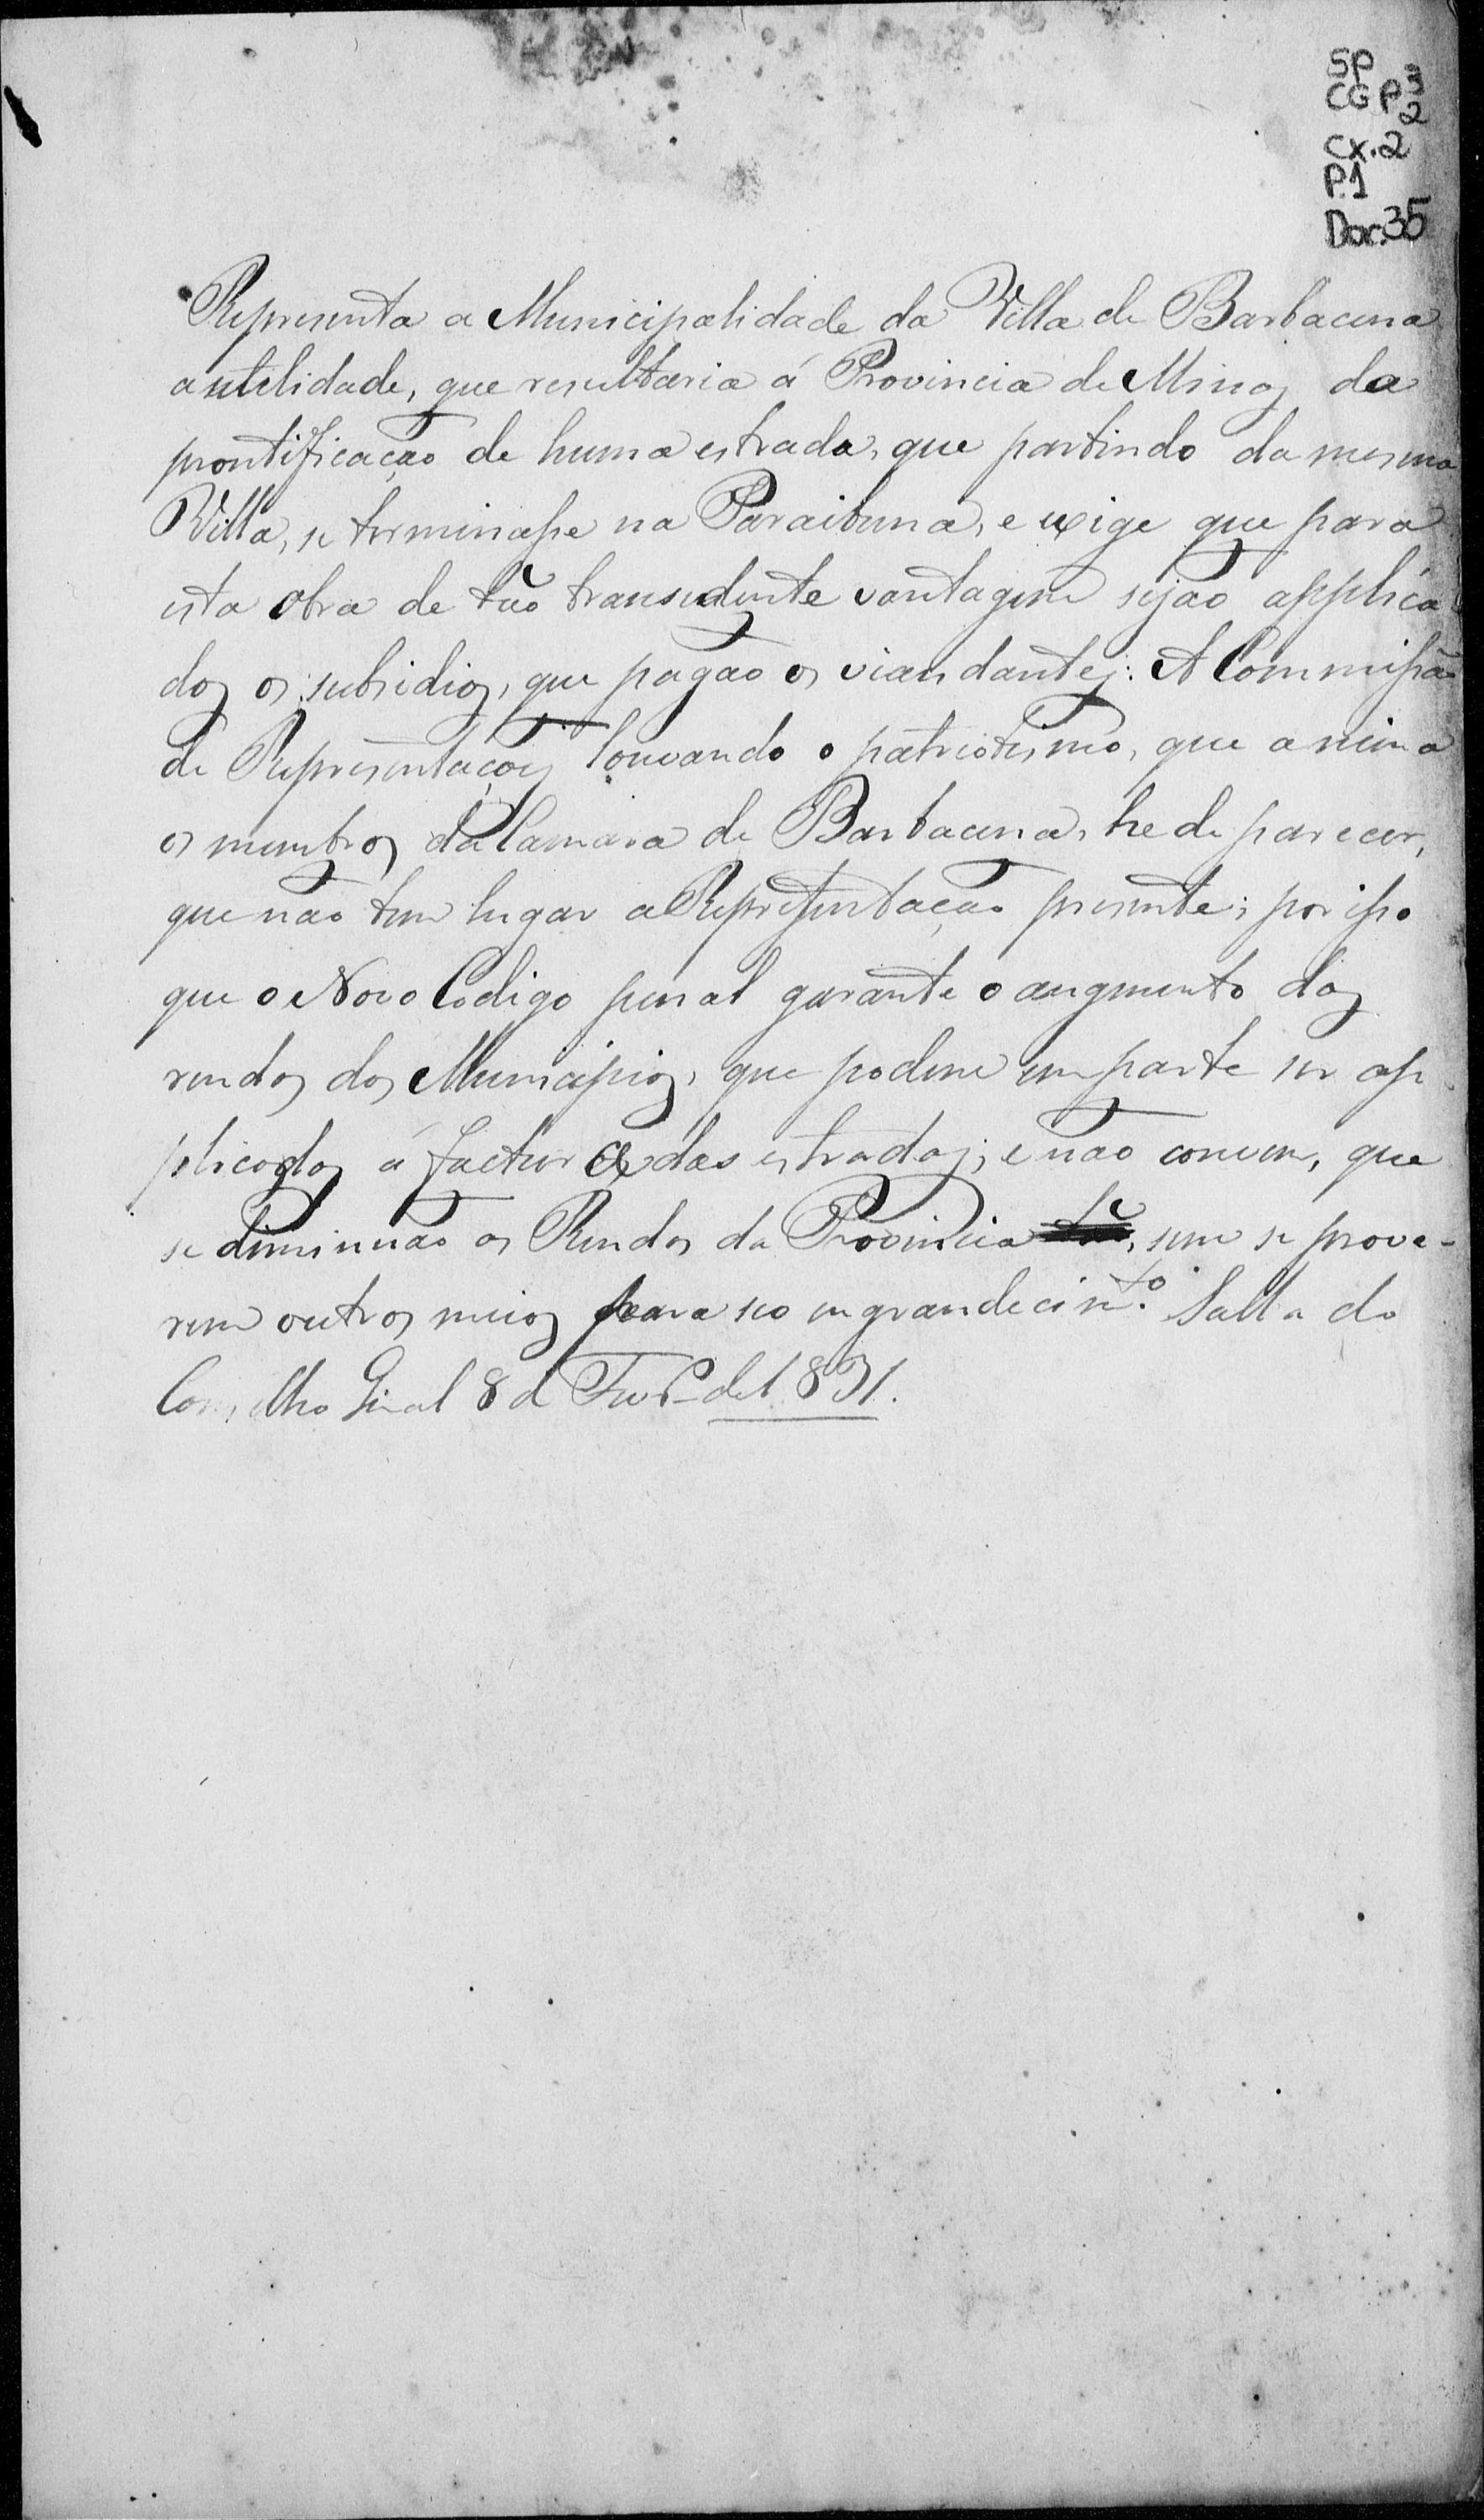 SP
CGP 3
2
Cx. 2
P.1
Doc. 35
Representa a Municipalidade da Villa de Barbacena
a utilidade, que resultaria á Provincia de Minas da
prontificação de huma estrada, que partindo da mesma
Villa, se terminasse na Paraibuna, e exige que para
esta obra de tão transcedente vantagem sejão applica
dos os subsidios, que pagão os viandantes: A Commissão
de Representações louvando o patriotismo, que anima
os membros da Camara de Barbacena, he de parecer,
que não tem lugar a Representação presente; por isso
que o Novo Codigo penal garante o augmento das
rendas dos Municipios, que podem em parte ser ap
plicadas á factura das estradas; e não convem, que
se diminuão as Rendas da Provincia, sem se prove-
rem outros meios para seo engrandecimto. Salla do
Conselho Geral 8 de Fevo de 1831.